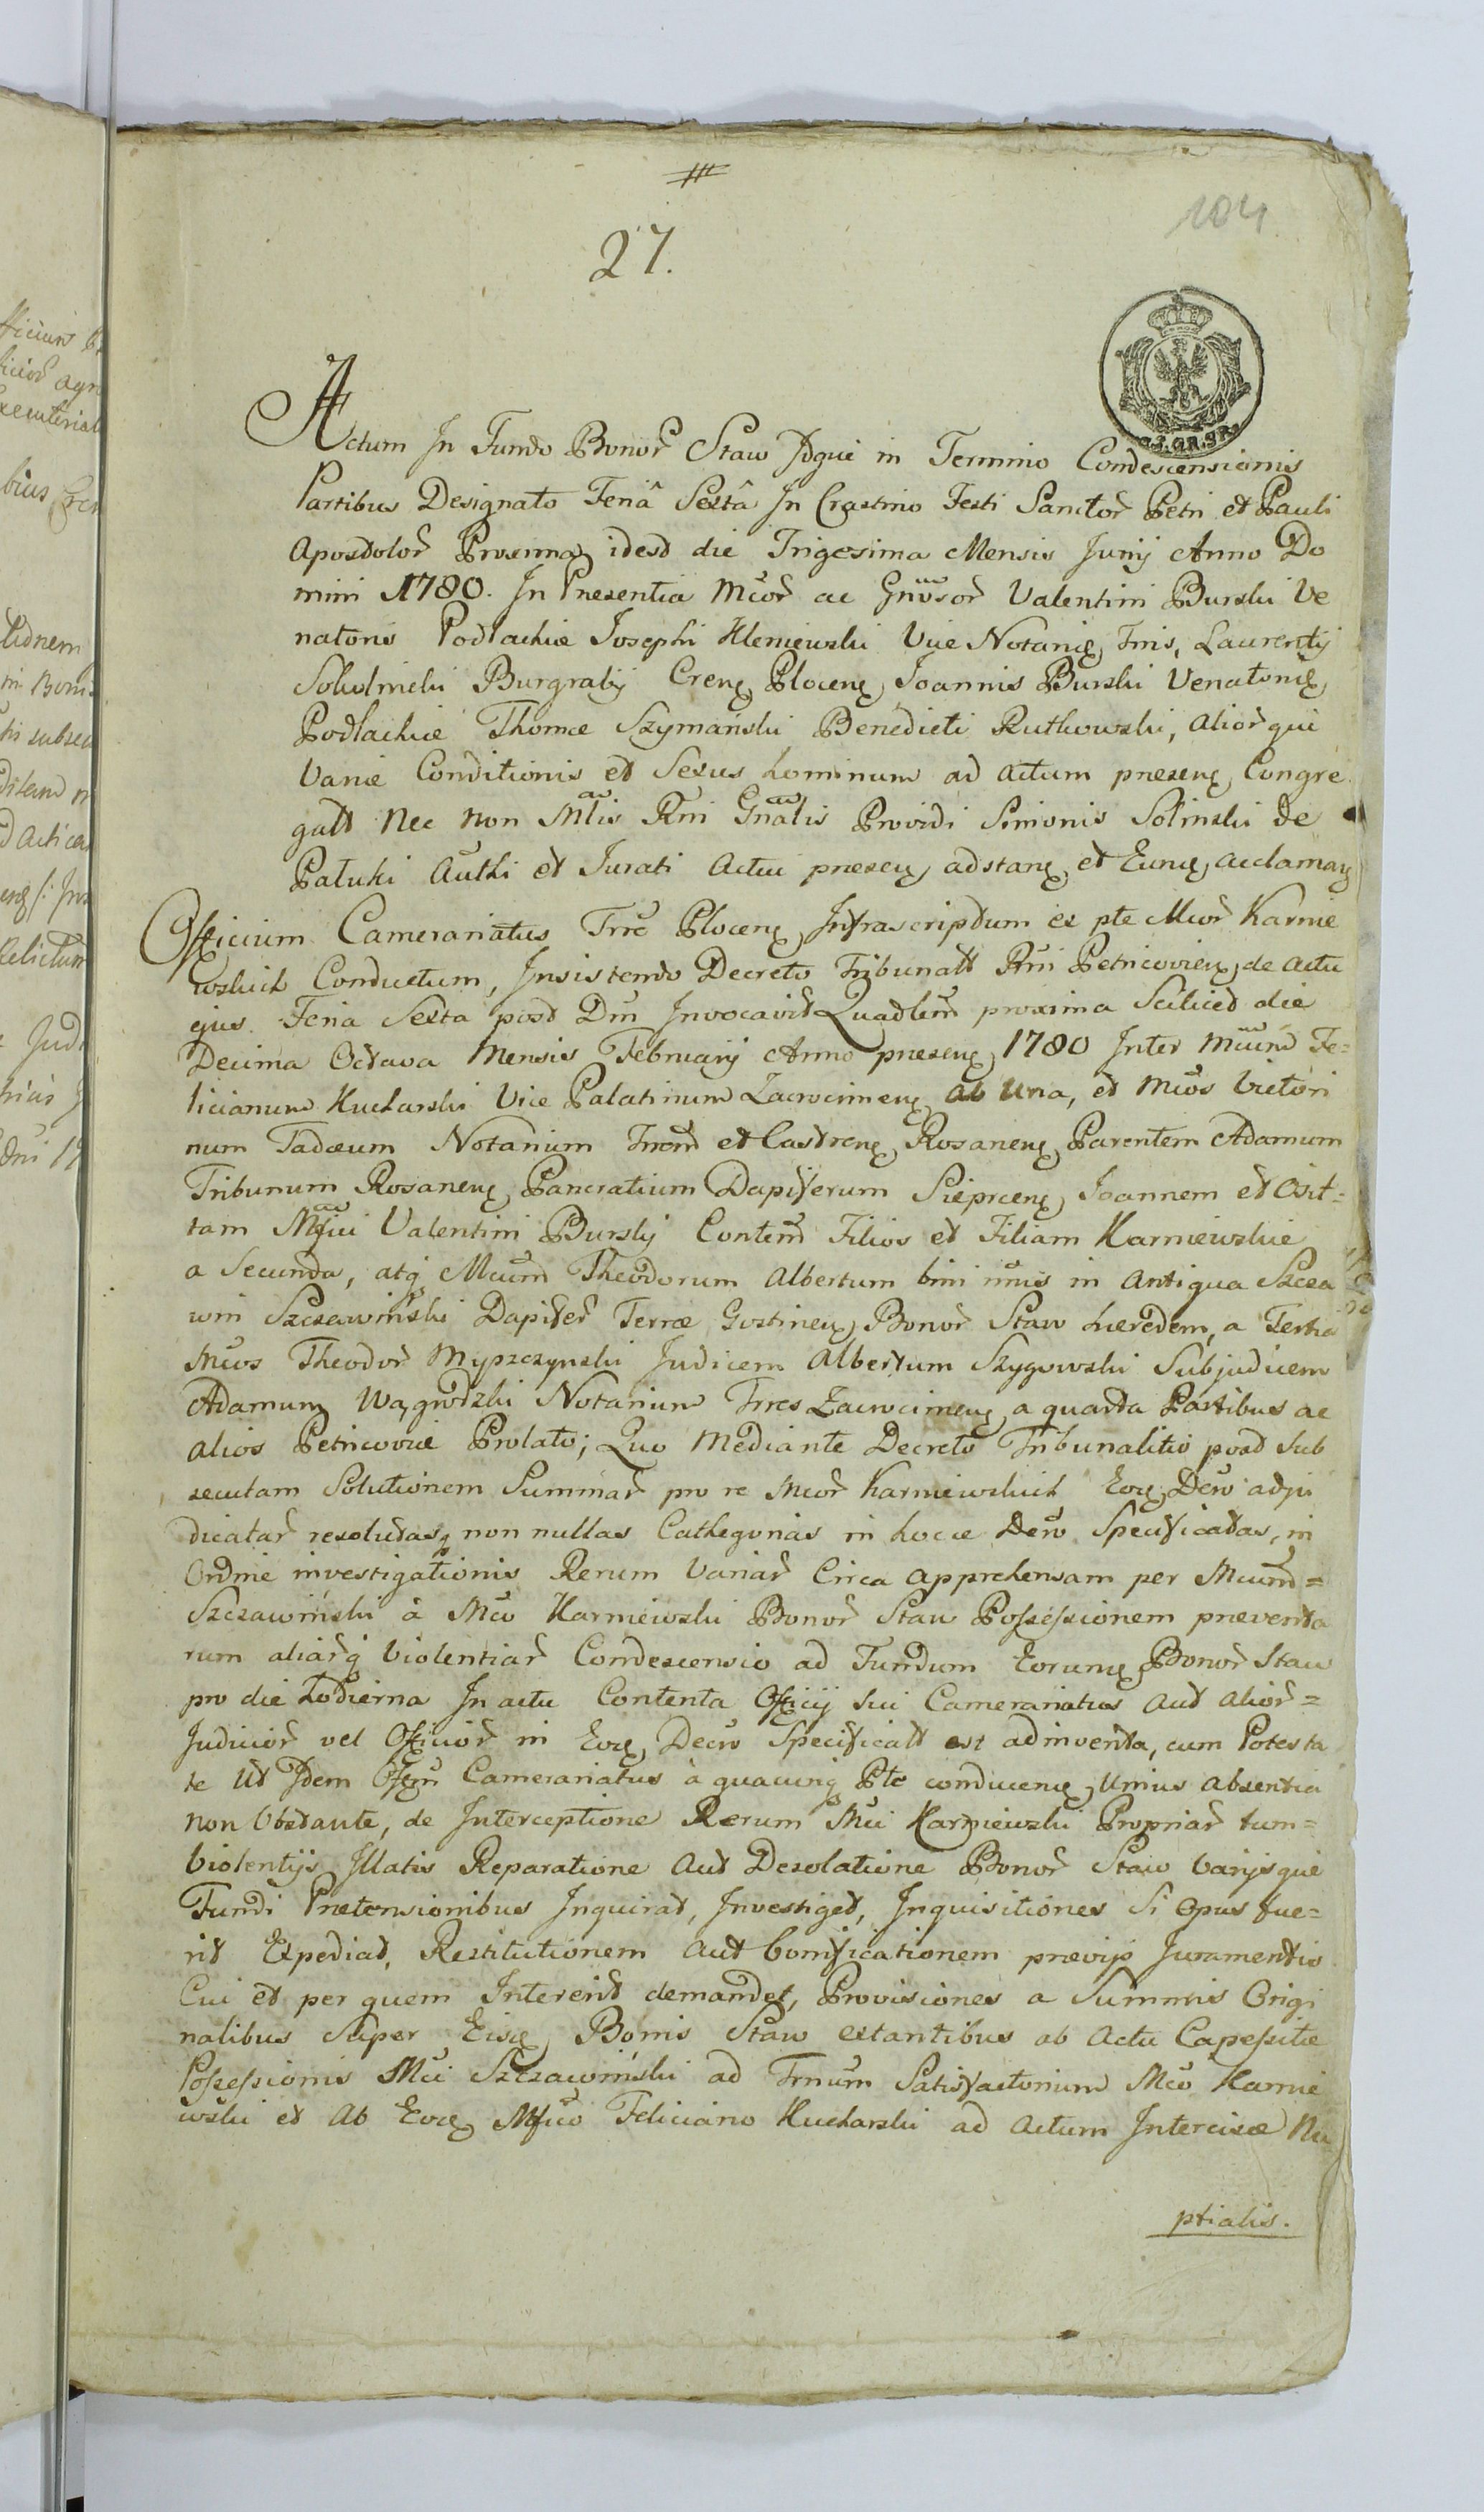 104
27.
S.GR.SR.
Actum In Fundo Bonor Staw Idque in Termino Condescensionis
Partibus Designato Feriâ Sextâ In Crastino Festi Sanctor Petri et Pauli
Apostolor Proxima, idest die Trigesima Mensis Junij Anno Do
mini 1780. In Presentia Mcor ac Gnusor Valentini Burski Ve
natoris Podlachiæ Josephi Kleniewski Vice Notarij Tris, Laurentij
Sokolnicki Burgrabij Cren Plocen Joannis Burski Venatoris
Podlachiæ Thomæ Szymański Benedicti Rutkowski, aliorque
Variæ Conditionis et Sexus hominum ad actum presen Congre
gatt Nec non Mlis Rni Gnalis Providi Simonis Solinski de
Pałuki Authi et Jurati Actui presen adstan et Eun acclaman
Officium Camerariatus Trræ Plocen Infrascriptum ex pte Mcor Karnie
wskich Conductum, Insistendo Decreto Tribunalt Rni Petricovien de actu
ejus Feria Sexta post Dni Invocavit Quadlem proxima Scilicet die
Decima Octava Mensis Februarij Anno presen 1780 Inter Mcum Fe=
licianum Kucharski Vice Palatinum Zacrocimen ab Una, et Mcos Victori
num Tadæum Notarium Trem et Castren Rosanen Parentem Adamum
Tribunum Rosanen Pancratium Dapiferum Sieprcen Joannem et Osit=
tam Mfici Valentini Burskj Contem Filios et Filiam Karniewskie
a Secunda, atq Mcum Theodorum Albertum bini nnis in Antiqua Szcza
win Szczawiński Dapifer Terræ Gostinen Bonor Staw hæredem, a Tertia
Mcos Theodor Mypszczynski Judicem Albertum Szygowski Subjudicem
Adamum Wągrodzki Notarium Trres Zacrocimen a quarta Partibus ac
alios Petricoviæ Prolato; Quo Mediante Decreto Tribunalitio post sub
secutam Solutionem Summar pro re Mcor Karniewskich Eoq Dcro adju
dicatar resolutasq non nullas Cathegorias in hocce Dcro Specificatas, in
Ordine investigationis Rerum Variar Circa apprehensam per Mcum=
Szczawiński à Mco Karniewski Bonor Staw Possessionem præventa
rum aliarq Violentiar Condescensio ad Fundum Eorunq Bonor Staw
pro die hodierna In actu Contenta Officij sui Camerariatus aut alior=
Judicior vel Officior in Eoq Decro Specificatt est adinventa, cum Potesta
te Ut Idem Offm Camerariatus à quacunq Pte conducen, Unius absentia
non Obstante, de Interceptione Rerum Mci Karniewski Propriar tum=
Violentijs Illatis Reparatione aut Desolatione Bonor Staw varijsque
Fundi Prætensionibus Inquirat, Investiget, Inquisitiones Si Opus fue=
rit Expediat, Restitutionem aut bonificationem prævijs Juramentis
Cui et per quem Intererit demandet, Provisiones a Summis Origi
nalibus Super Eisq Bonis Staw extantibus ab actu Capessitæ
Possessionis Mci Szczawiński ad Trnum Satisfactorium Mco Karnie
wski et Ab Eoq Mfico Feliciano Kucharski ad actum Intercisæ Nu
ptialis.